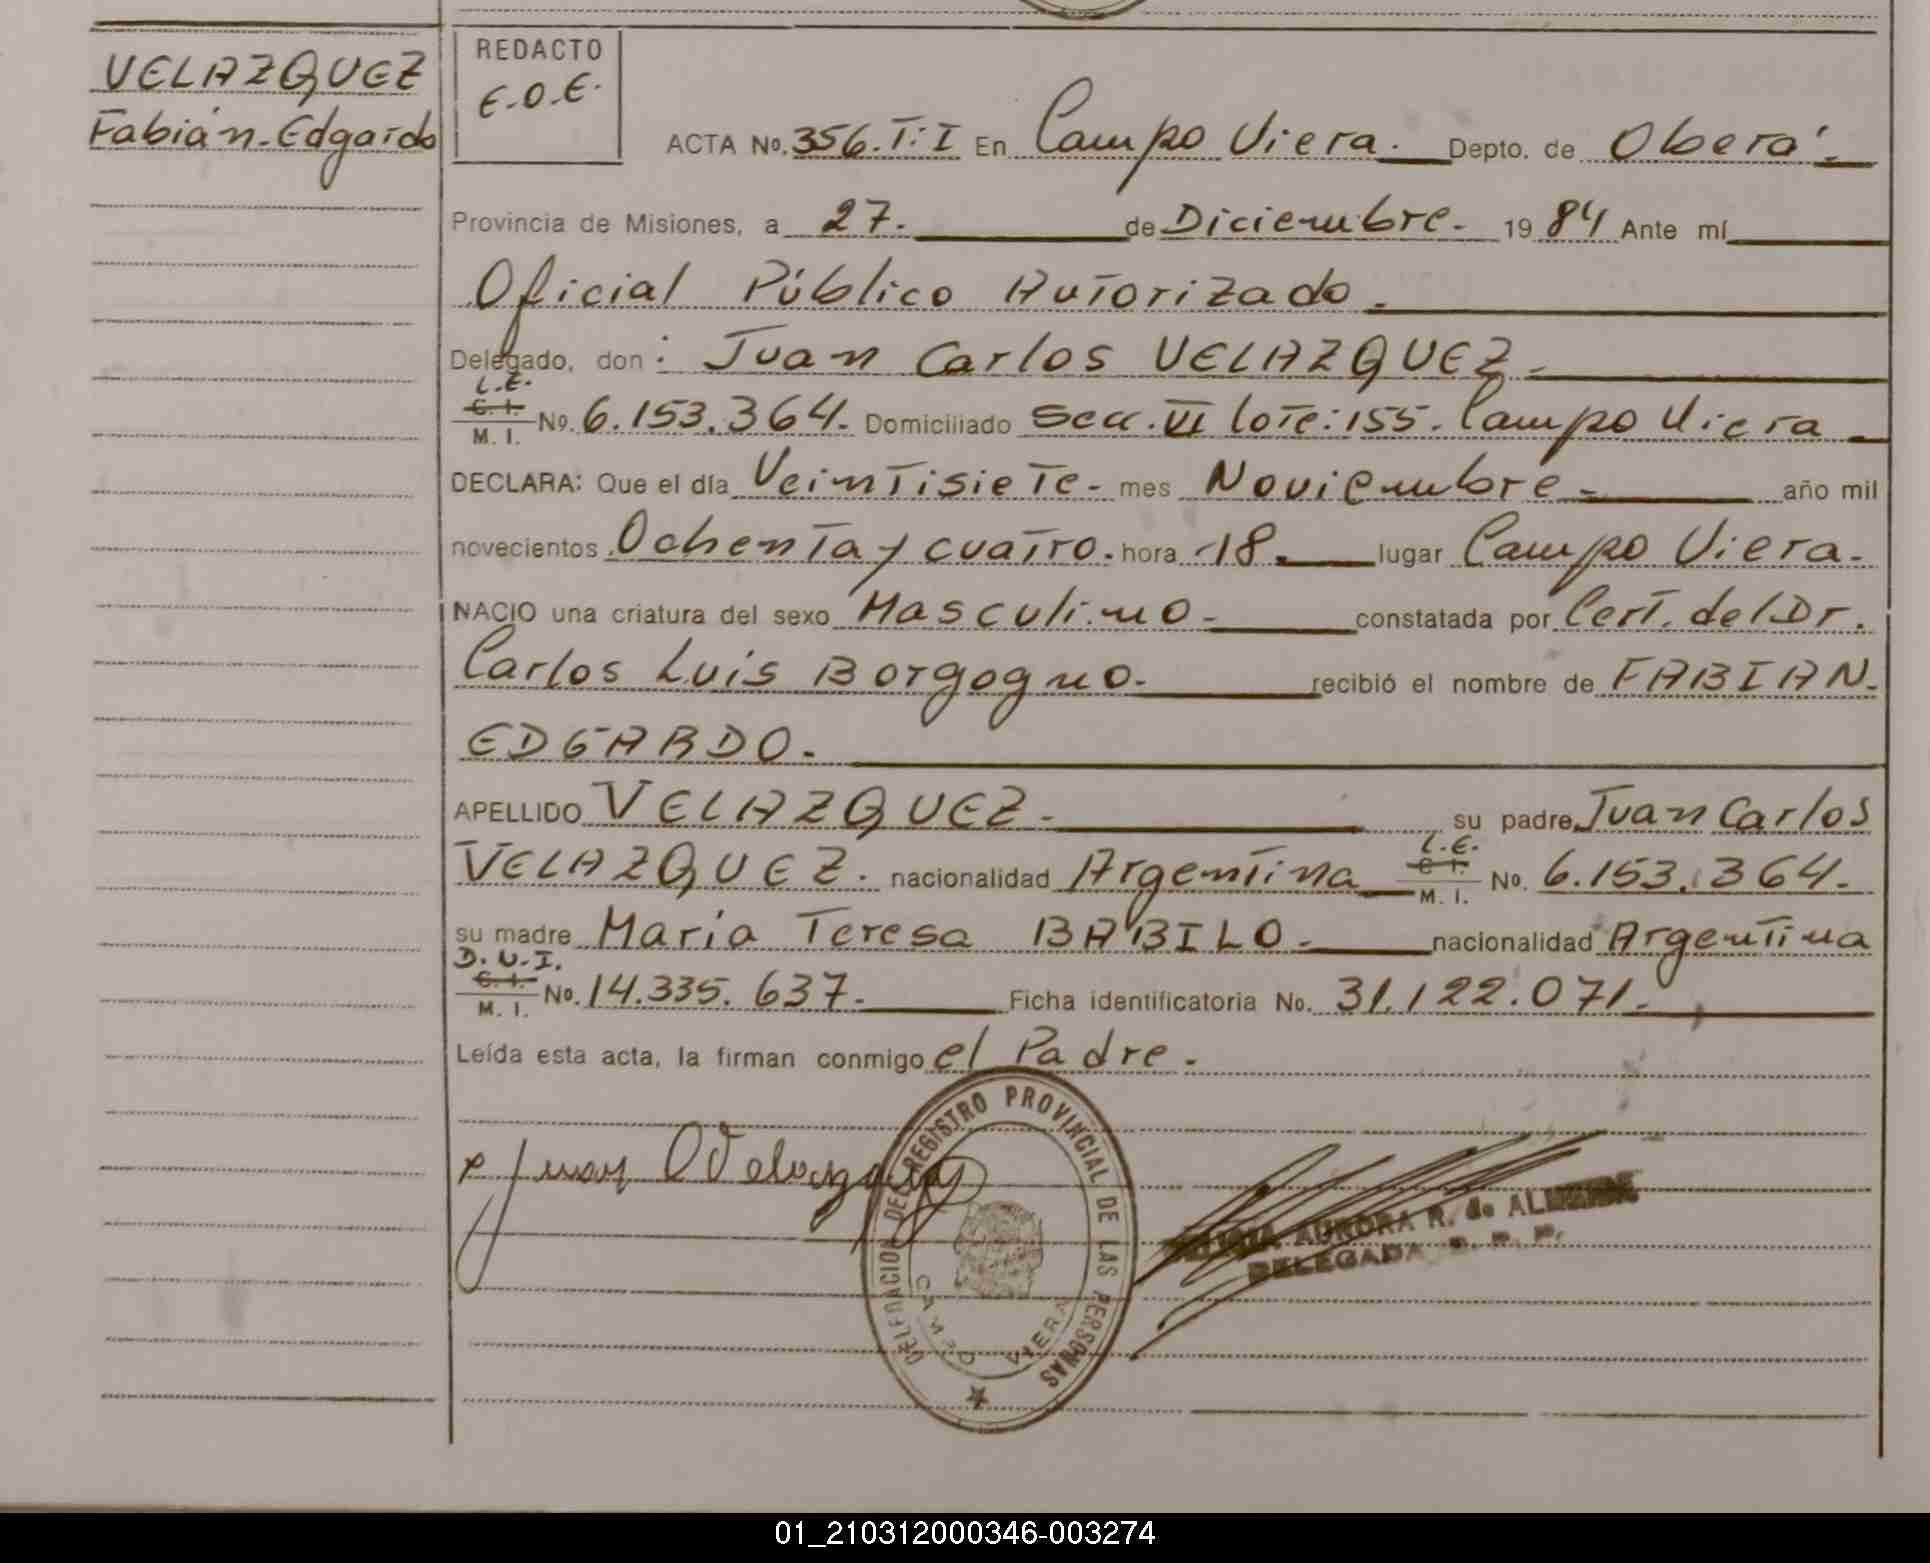 VELAZQUEZ
Fabián-Edgardo
REDACTO
E.O.E.
ACTA No. 356.T:I En Campo Viera. Depto. de Oberá.
Provincia de Misiones, a 27. de Diciembre. 1984 Ante mí
Oficial Público Autorizado.
Delegado, don: Juan Carlos VELAZQUEZ.
L.E.
C. I.
M. I.
No. 6.153.364. Domiciliado Secc. VI lote:155. Campo Viera
DECLARA: Que el día Veintisiete- mes Noviembre - año mil
novecientos Ochenta y cuatro. hora 18. lugar Campo Viera.
NACIO una criatura del sexo Masculino- constatada por Cert. del Dr.
Carlos Luis Borgogno. recibió el nombre de FABIAN.
EDGARDO.
APELLIDO VELAZQUEZ. su padre Juan Carlos
VELAZQUEZ. nacionalidad Argentina
L.E.
C. I.
M. I.
No. 6.153.364.
su madre María Teresa BABILO. nacionalidad Argentina
D.U.I.
C. I.
M. I.
No. 14.335.637. Ficha identificatoria No. 31.122.071.
Leída esta acta, la firman conmigo el Padre.
DELEGACION DEL REGISTRO PROVINCIAL DE LAS PERSONAS
CAMPO VIERA
AURORA R. de
DELEGADA R. P. P.
01_210312000346-003274